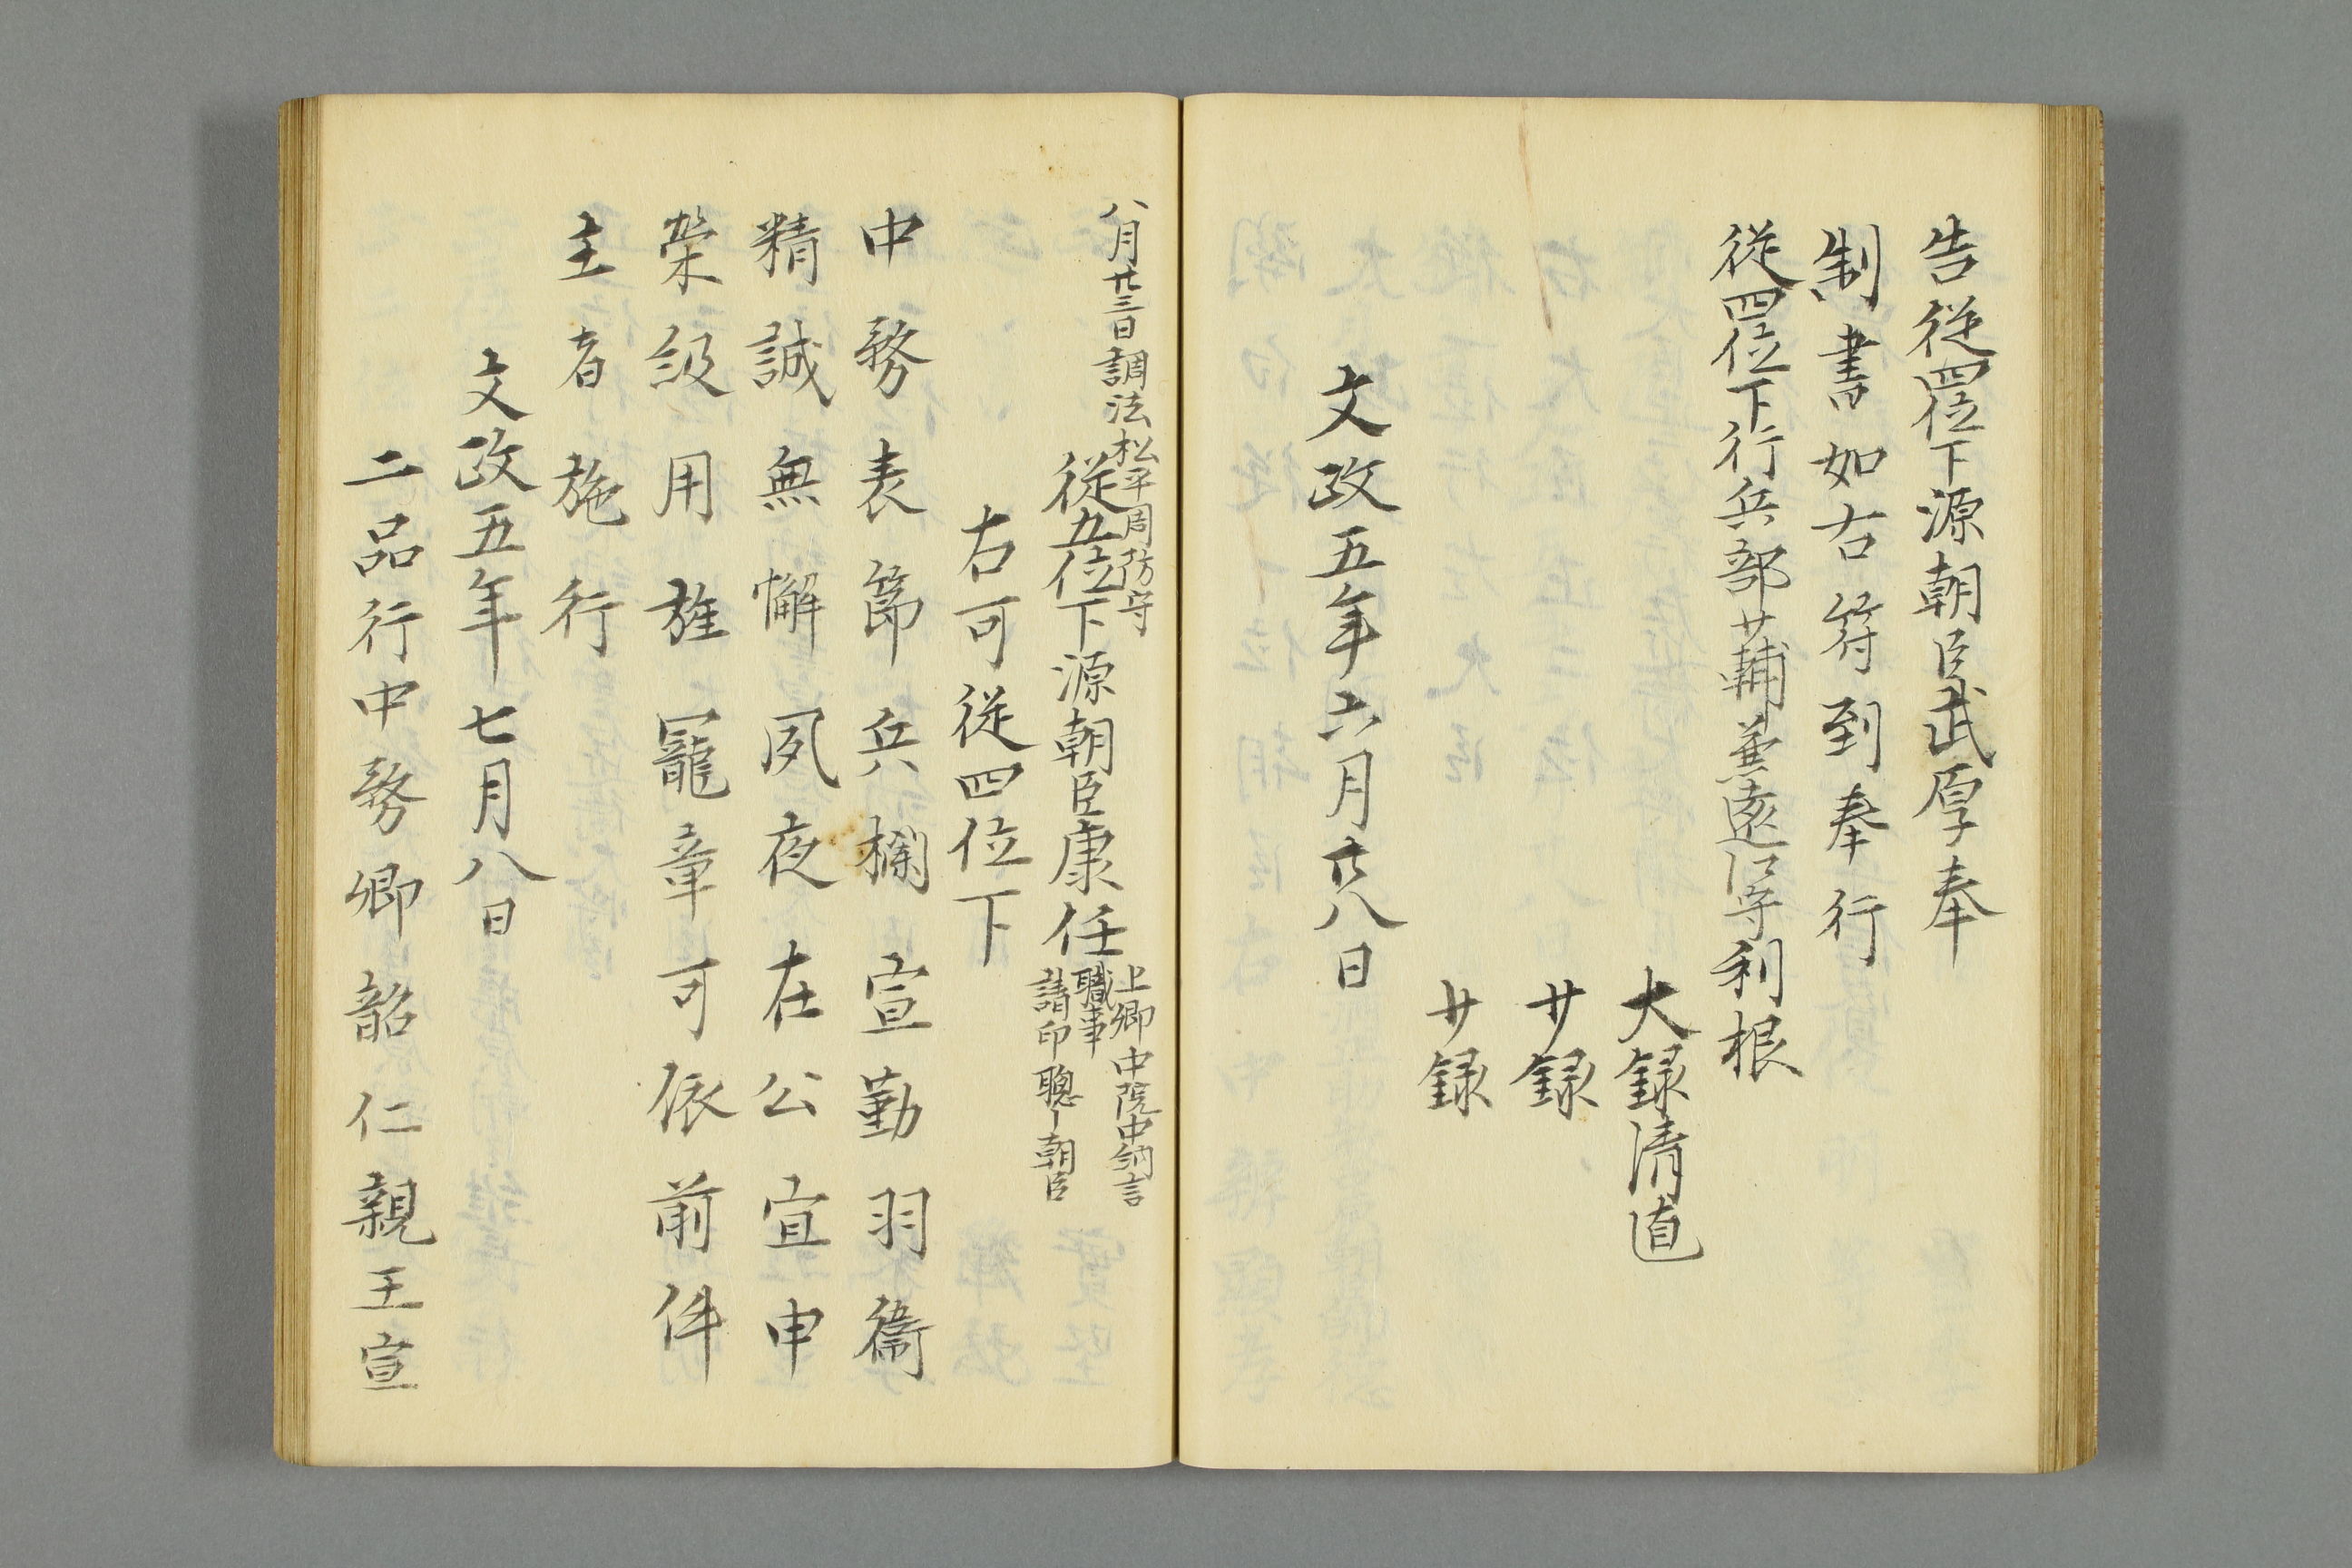 告従四位下源朝臣武厚奉
制書如右符到奉行
従四位下行兵部少輔兼遠江守利根
大録清直
少録
少録
文政五年六月廿八日
八月廿三日調法松平周防守
従五位下源朝臣康任
上卿中院中納言
職事
請印聰〻朝臣
右可従四位下
中務表節兵欄宣勤羽衞
精誠無懈夙夜在公宜申
榮級用旌寵章可依前件
主者施行
文政五年七月八日
二品行中務卿韶仁親王宣